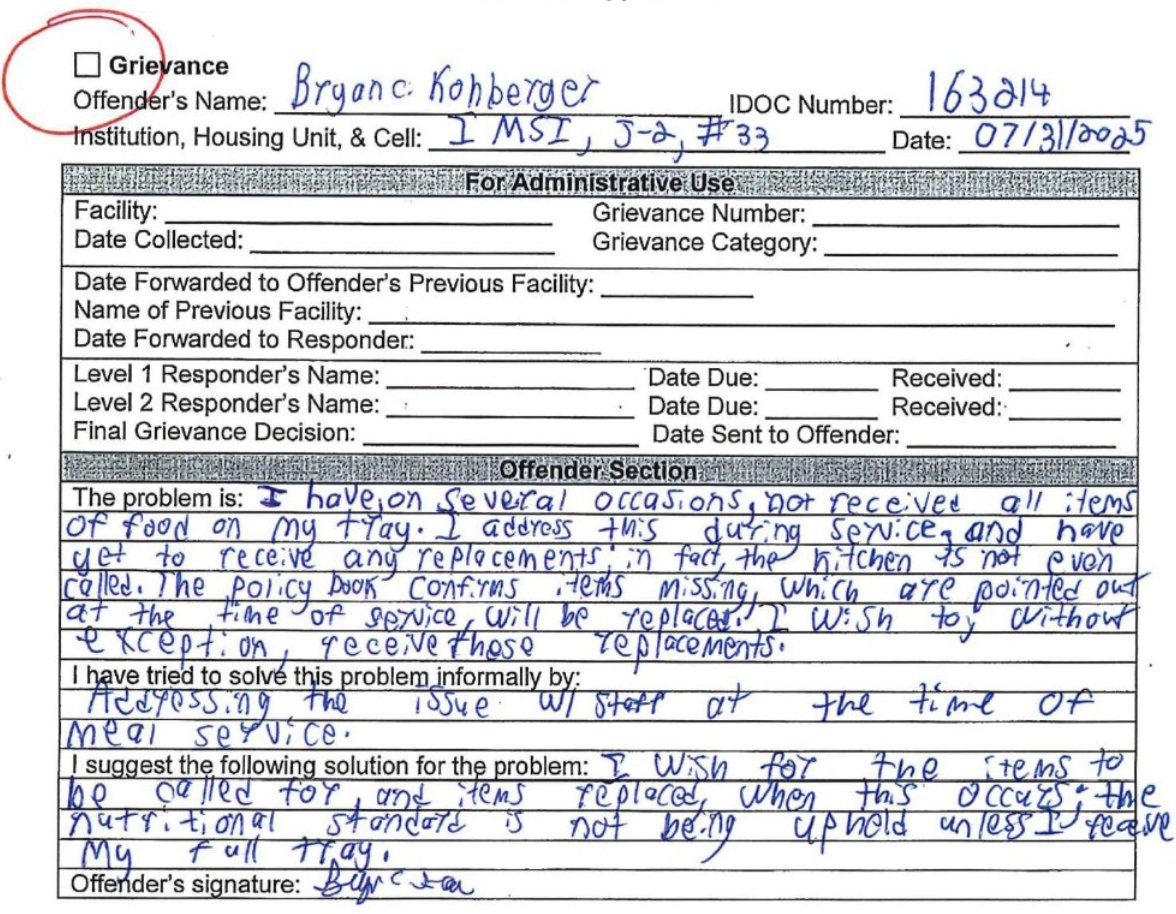 Grievance
Offender's Name: Bryan C. Kohberger IDOC Number: 163214
Institution, Housing Unit, & Cell: IMSI, J-2, #33 Date: 07/31/2025
For Administrative Use
Facility: Grievance Number:
Date Collected: Grievance Category:
Date Forwarded to Offender's Previous Facility:
Name of Previous Facility:
Date Forwarded to Responder:
Level 1 Responder's Name: Date Due: Received:
Level 2 Responder's Name: Date Due: Received:
Final Grievance Decision: Date Sent to Offender:
Offender Section
The problem is: I have, on several occasions, not received all items
of food on my tray. I address this during service, and have
yet to receive any replacements; in fact, the kitchen is not even
called. The policy book confirms items missing, which are pointed out
at the time of service, will be replaced. I wish to, without
exception, receive those replacements.
I have tried to solve this problem informally by:
Addressing the issue w/ staff at the time of
meal service.
I suggest the following solution for the problem: I wish for the items to
be called for, and items replaced, when this occurs; the
nutritional standard is not being upheld unless I receive
my full tray.
Offender's signature: